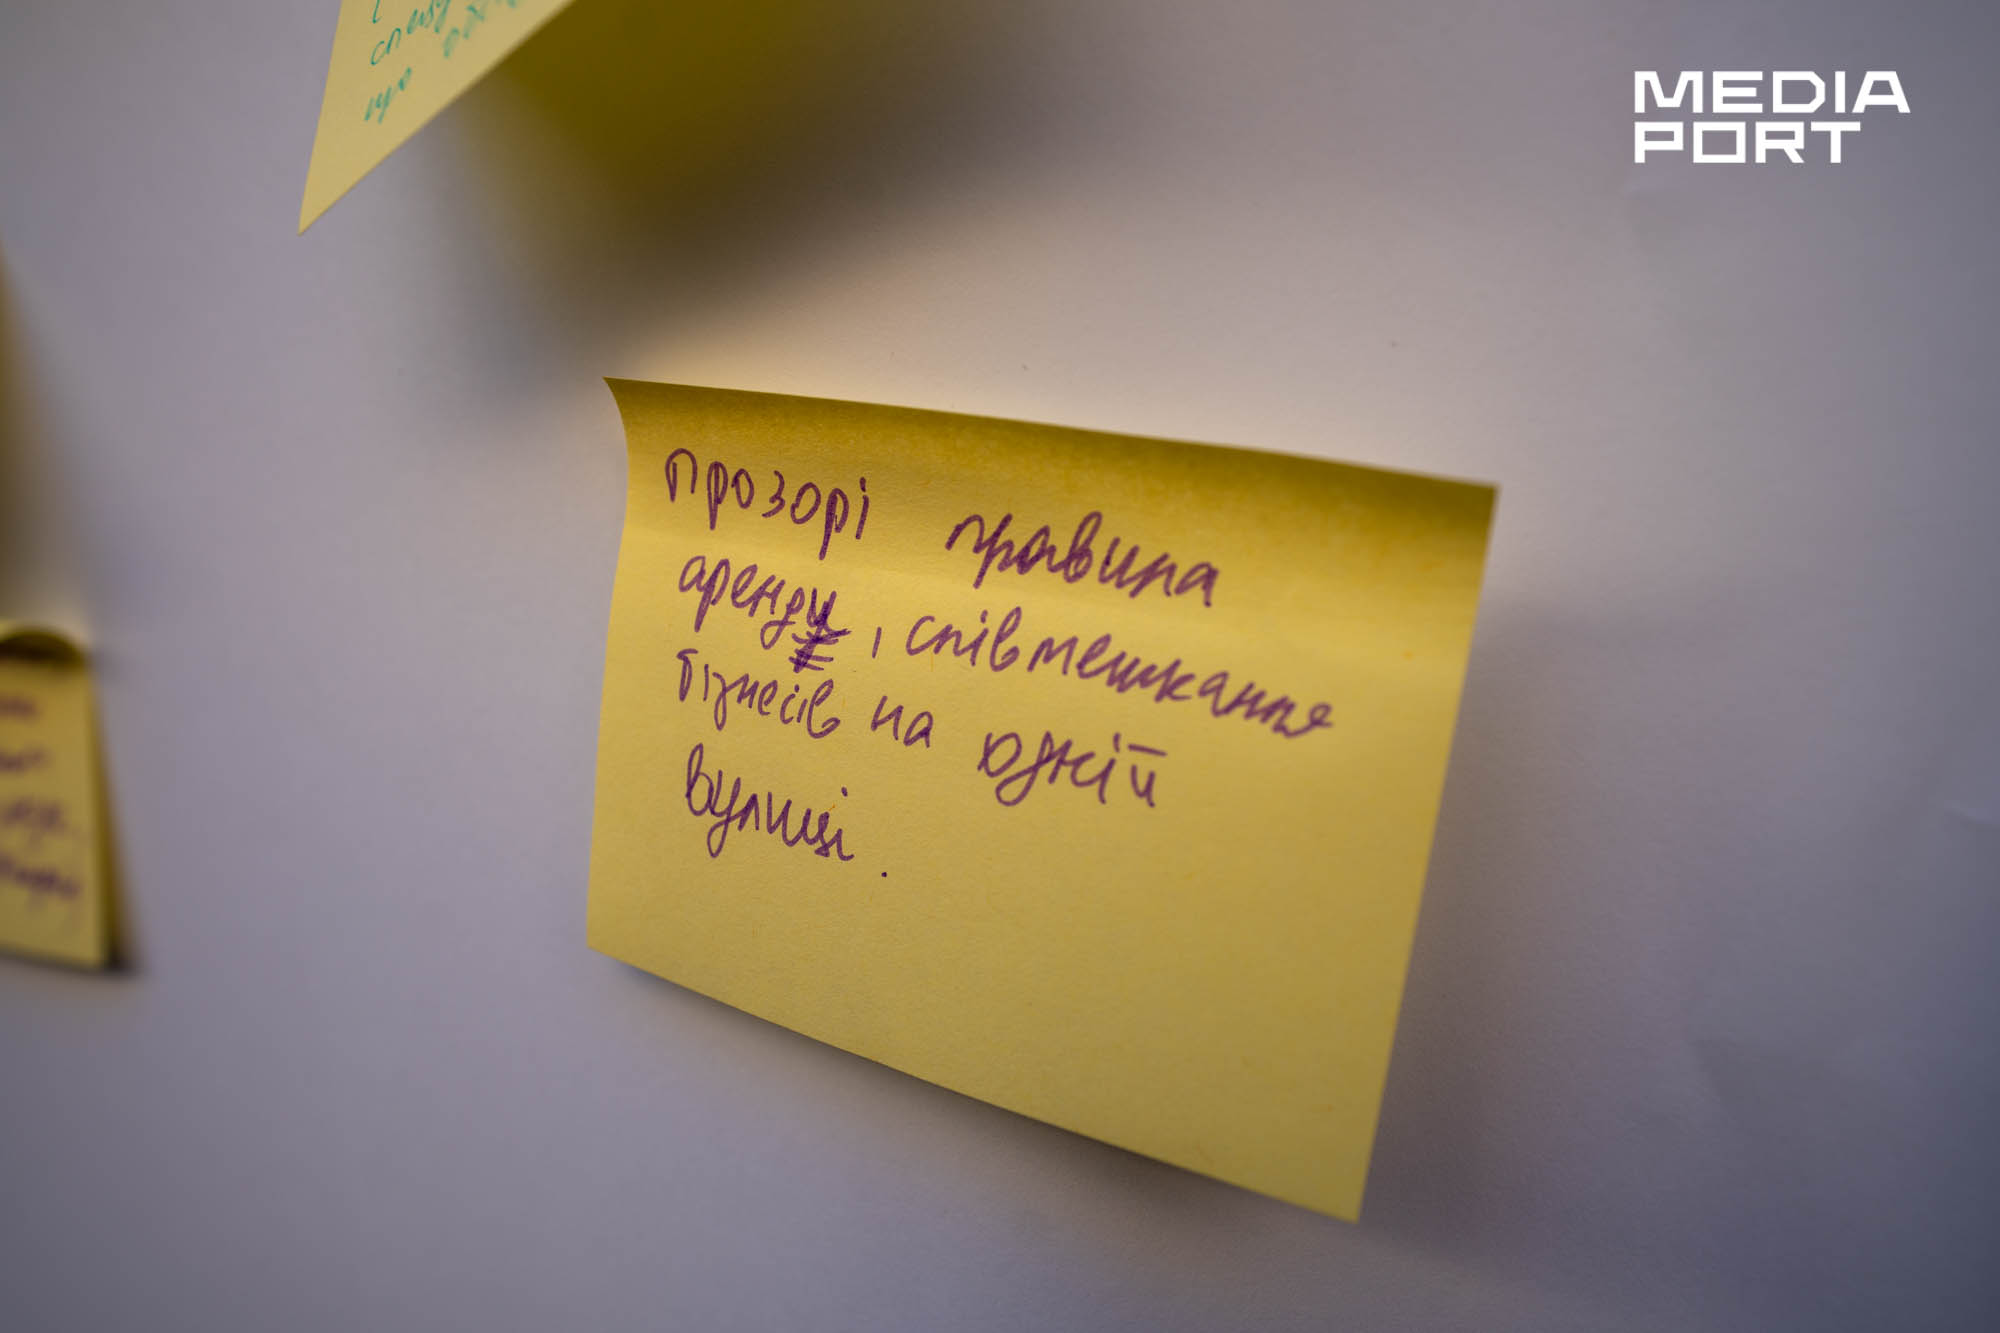 MEDIA
PORT
що
прозорі правила
аренди, співмешкання
бізнесів на одній
вулиці.